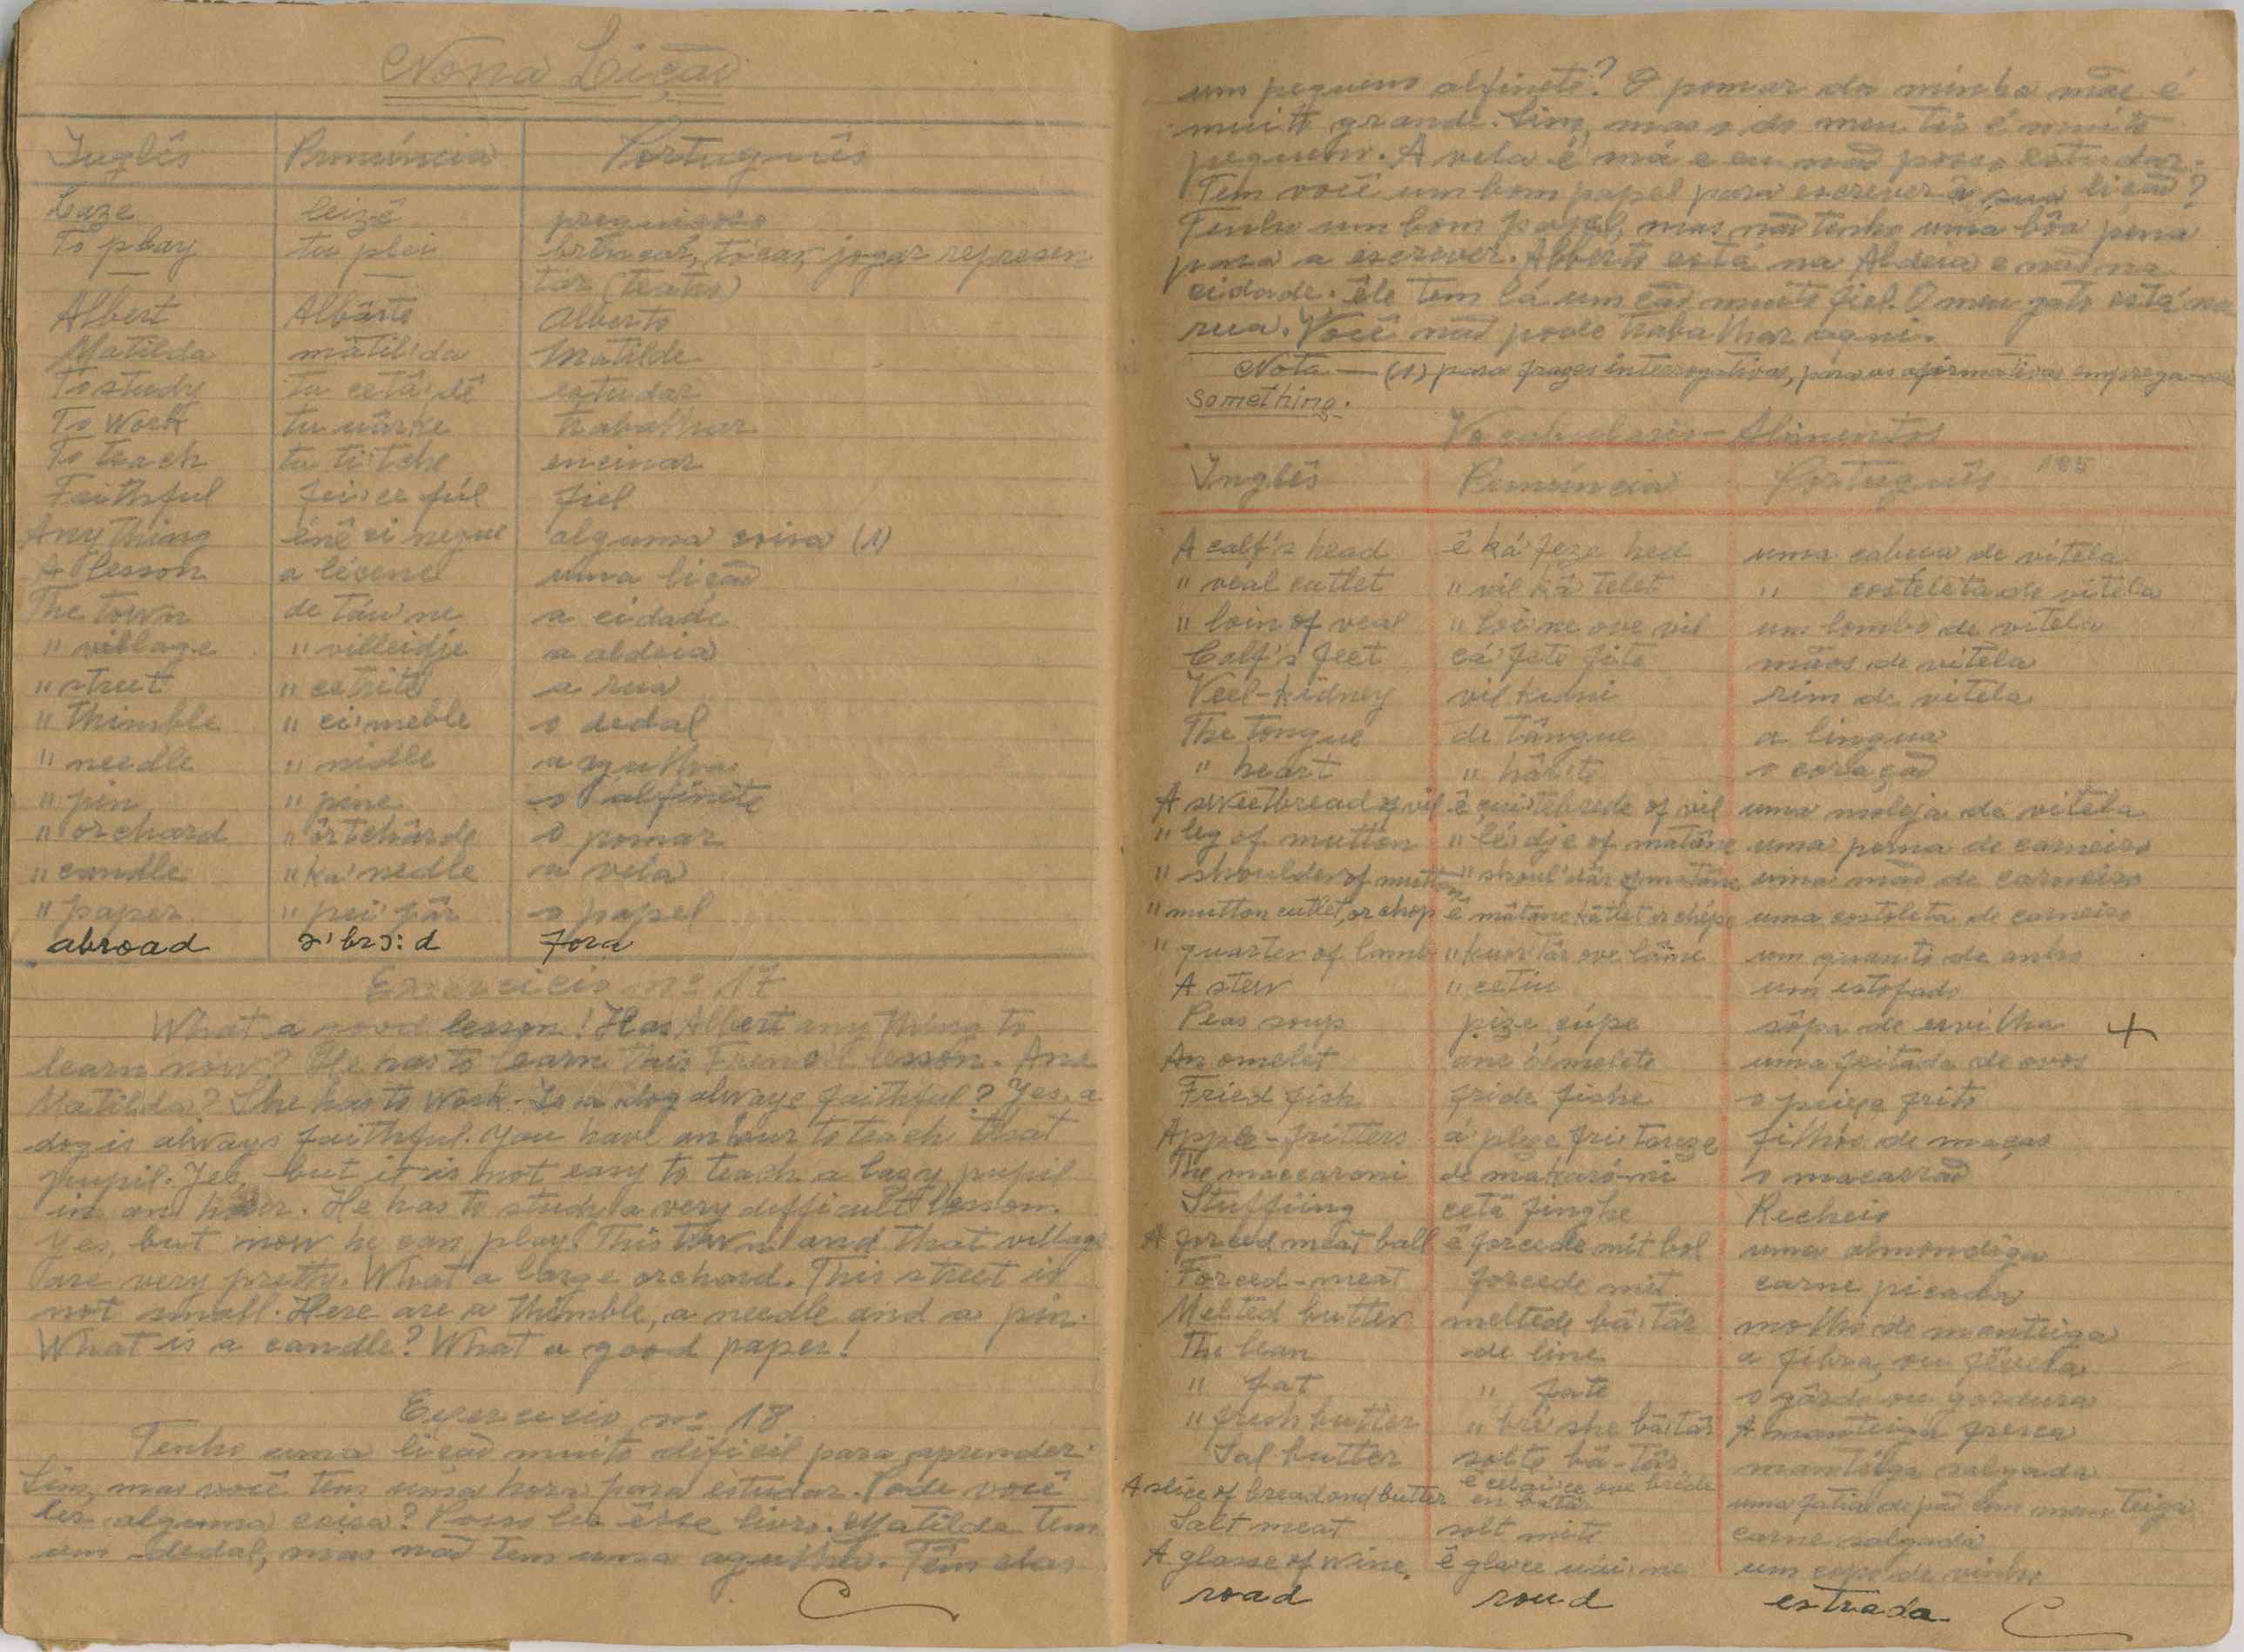 Nona Lição
Inglês Pronúncia Português
Laze leizê preguiçoso
To play tu plei brincar, tocar, jogar represen
tar (teatro)
Albert Albârte Alberto
Matilda mátilda Matilde
To study tu cetâ'dê estudar
To Work tu uârke trabalhar
To teach tu ti'tche encinar
Faithful fei'ce fúl fiel
Any thing énê ci negue alguma coisa (1)
A lesson a légene uma lição
The town de táu'ne a cidade
" village " villeidje a aldeia
" street " cetrite a rua
" thimble " ci'meble o dedal
" needle " nidle a agulha
" pin " pine o alfinete
" orchard " ôrtchârde o pomar
" candle " ka'nedle a vela
" paper " pei'pâr o papel
abroad ə'brɔ:d fora
Exercicio nº 17
What a good lesson! Has Albert any thing to
learn now? He has to learn this French lesson. And
Matilda? She has to work. Is a dog always faithful? Yes, a
dog is always faithful. You have an hour to teach that
pupil. Yes, but it is not easy to teach a lazy pupil
in an hour. He has to study a very difficult lesson.
Yes, but now he can play! This town and that village
are very pretty. What a large orchard. This street is
not small. Here are a thimble, a needle and a pin.
What is a candle? What a good paper!
Exercicio nº 18
Tenho uma lição muito dificil para aprender.
Sim, mas você tem uma hora para estudar. Pode você
ler alguma coisa? Posso ler êsse livro. Matilda tem
um dedal, mas não tem uma agulha. Têm elas
um pequeno alfinete? O pomar da minha mãe é
muito grande. Sim, mas o do meu tio é muito
pequeno. A vela é má e eu não posso estudar.
Tem você um bom papel para escrever a sua lição?
Tenho um bom papel, mas não tenho uma bôa pena
para a escrever. Alberto está na Aldeia e não na
cidade. êle tem lá um cão muito fiel. O meu gato está na
rua. Você não pode trabalhar aqui.
Nota — (1) para frazes interrogativas, para as afirmativas emprega-se
something.
Vocabulario - Alimentos
Inglês Pronúncia Português 185
A calf's head ê ká'feze hed uma cabeça de vitela
" veal cutlet " vil kâ telet " costeleta de vitela
" loin of veal " loi'ne ove vil um lombo de vitela
Calf's feet cá'fete fite mãos de vitela
Veel-kidney vil kidni rim de vitela
The tongue de tângue a lingua
" heart " hár'te o coração
A sweetbread of vil ê çui'tebrede of vil uma moleja de vitela
" leg of mutton " lé'dje of mâtâne uma perna de carneiro
" shoulder of mutton " shoul'dâr of mâtâne uma mão de carneiro
" mutton cutlet, or chop ê mâtâne kâtlet or chópe uma costoleta de carneiro
" quarter of lamb " kuor'târ ove lâme um quarto de anho
A stew " cetiu um estofado
Peas soup pize çúpe sôpa de ervilha +
An omelet ane ó'melete uma feitada de ovos
Fried fish fride fishe o peixe frito
Apple-fritters á'pleze fri'tareze filhós de maçãs
The maccaroni de makaró-ni o macarrão
Stuffiing cetâ finghe Recheio
A forced meat ball ê forcede mit bol uma almondiga
Forced-meat forcede mit carne picada
Melted butter meltede bâ'târ molho de manteiga
The lean de line a fibra, ou fêvera
" fat " fate o gôrdo ou gordura
" fresh butter " bré'she bâ'târ A manteiga fresca
Sal butter solte bâ-târ manteiga salgada
A slice of bread and butter ê celai'ce ove bréde en batâr uma fatia de pão com manteiga
Salt meat solt mite carne salgada
A glasse of wine. ê gla'ce uái'ne um copo de vinho
road roud estrada